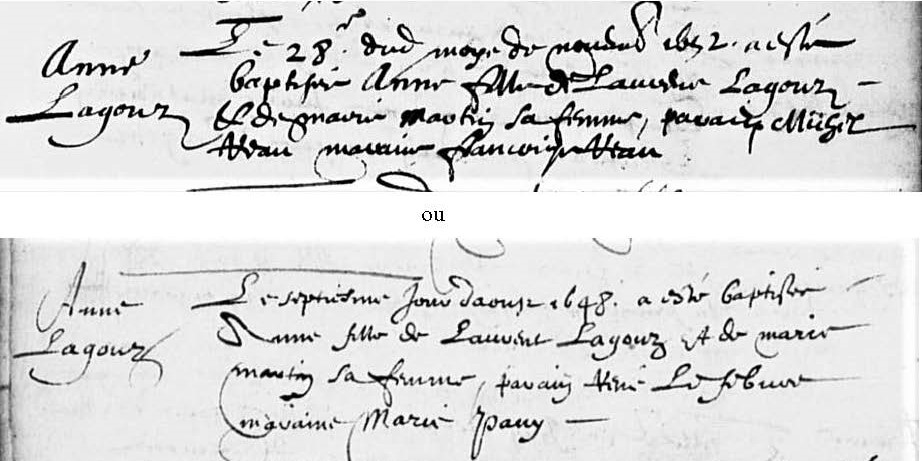 Anne
Lagouz
Le 28.e dud moys de novemb 1652. a esté
baptisee Anne fille de Laurens Lagouz
& de Marie Martin sa femme, parain Michel
marainne francoise
ou
Anne
Lagouz
Le septiesme Jour daoust 1648. a esté baptisée
Anne fille de Laurent Lagouz et de marie
martin sa femme, parain René Lefebvre
maraine Marie Pavy